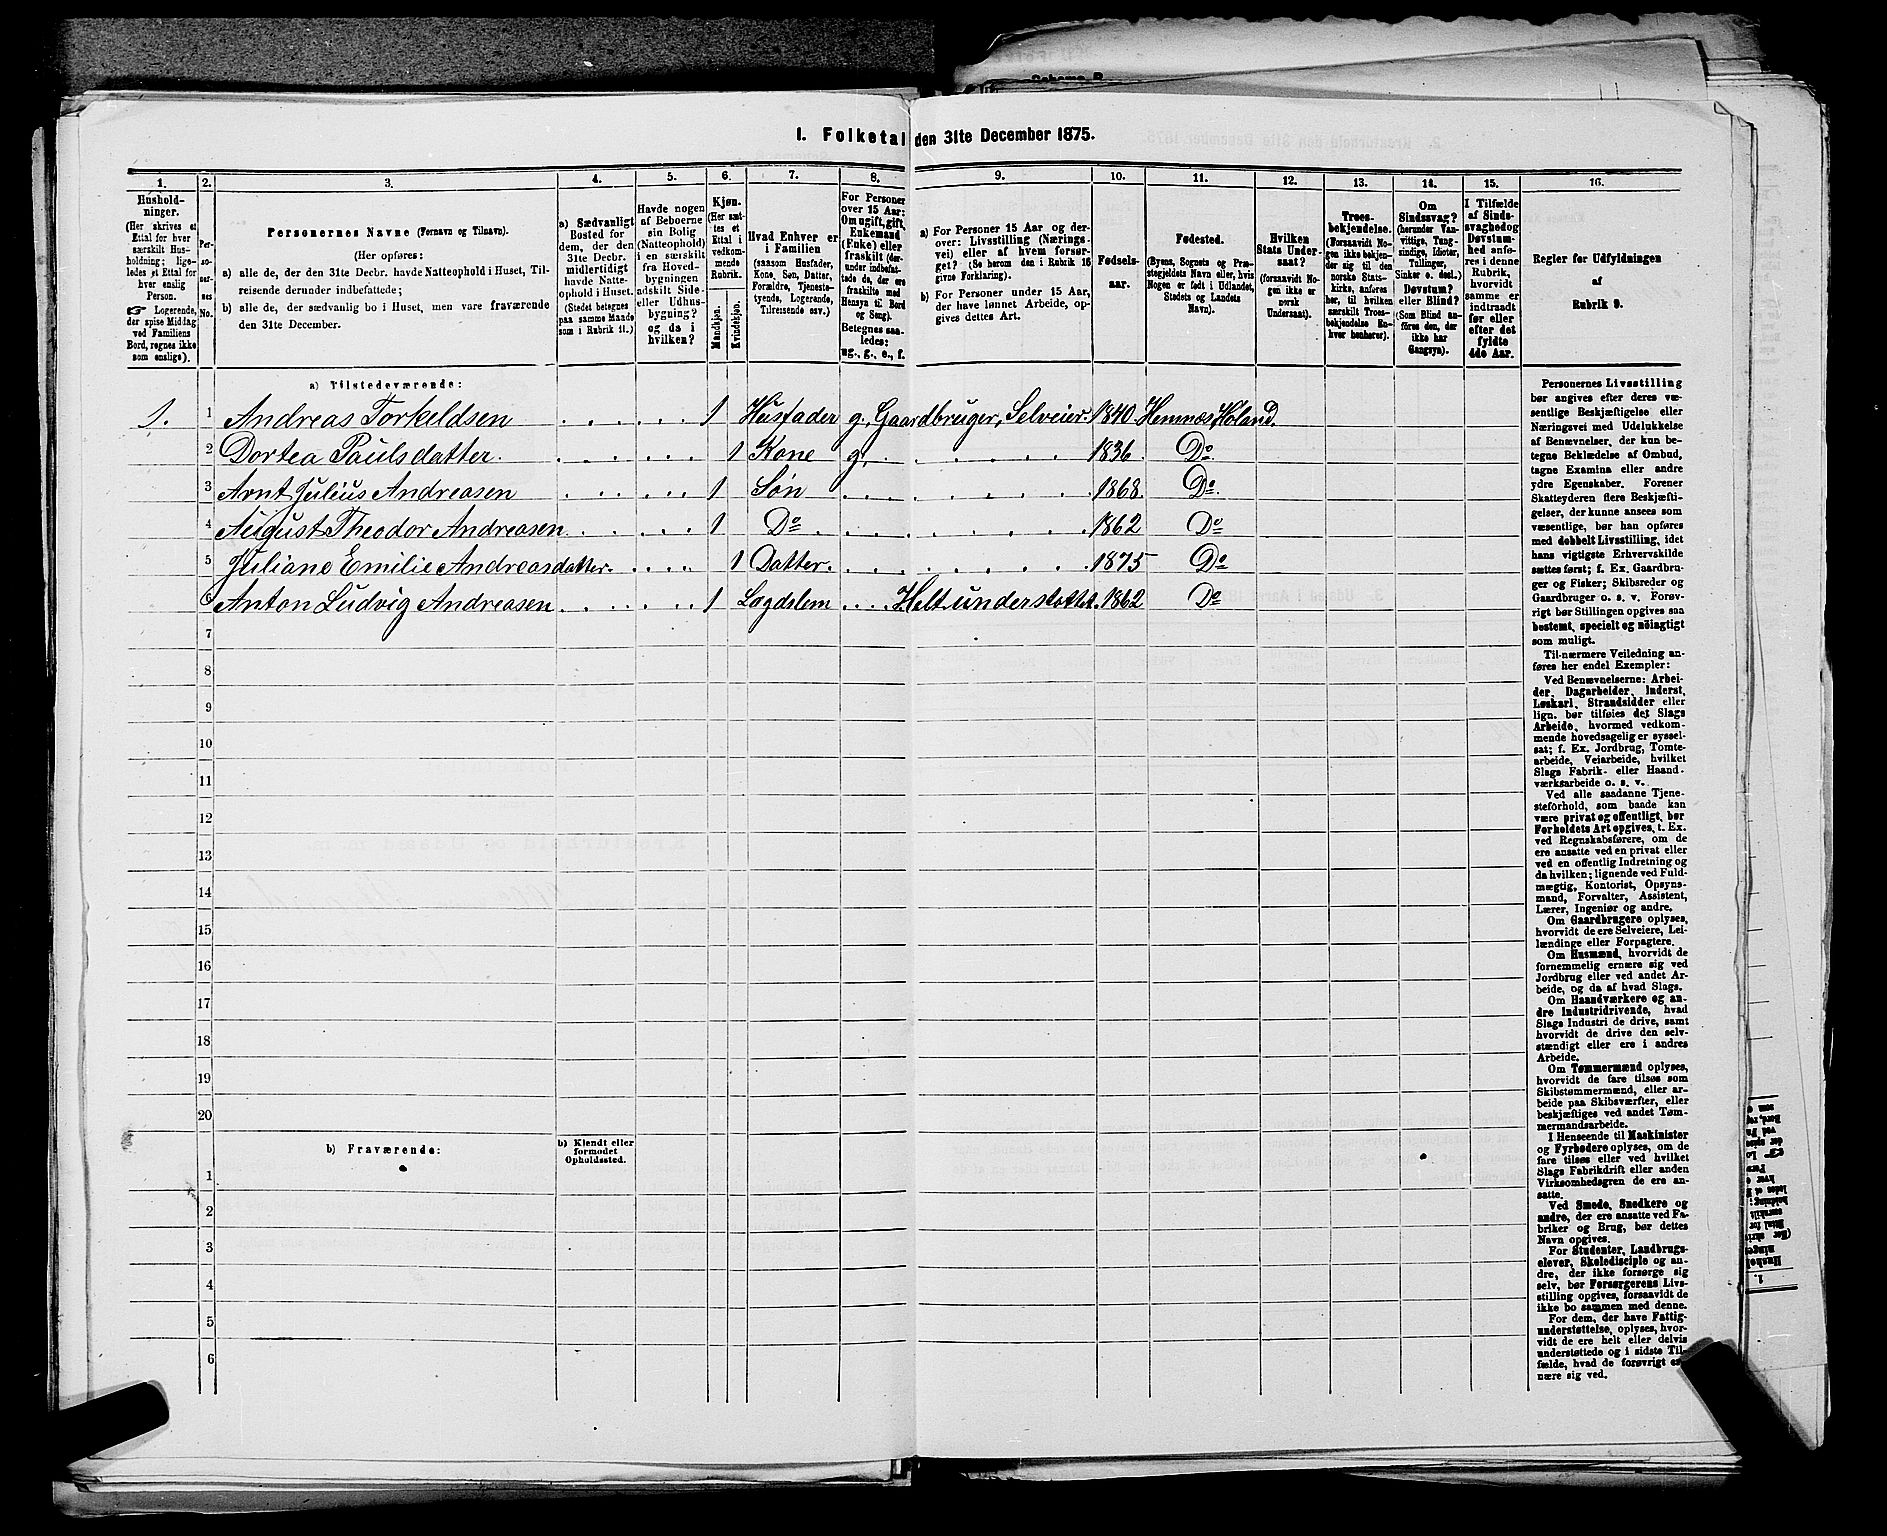 1. Folketal den 31te December 1875.
1. 2. 3. 4. 5. 6. 7. 8. 9. 10. 11. 12. 13. 14. 15. 16.
Hushold-
ninger.
(Her skrives et
Ettal for hver
særskilt Hus-
holdning; lige-
ledes et Ettal for
hver enslig
Person.
☞ Logerende,
der spise Middag
ved Familiens
Bord, regnes ikke
som enslige).
Per-
No.
Personernes Navne (Fornavn og Tilnavn).
(Her opføres:
a) alle de, der den 31te Decbr. havde Natteophold i Huset, Til-
reisende derunder indbefattede;
b) alle de, der sædvanlig bo i Huset, men vare fraværende
den 31te December.
a) Sædvanligt
Bosted for
dem, der den
31te Decbr.
midlertidigt
havde Natte-
ophold i Huset.
(Stedet betegnes
paa samme Maade
som i Rubrik 11.)
Havde nogen
af Beboerne
sin Bolig
(Natteophold)
i en særskilt
fra Hoved-
bygningen
adskilt Side-
eller Udhus-
bygning?
og da i
hvilken?
Kjøn.
(Her sæt-
tes et
Ettal i
vedkom-
mende
Rubrik.
Mandkjøn.
Kvindekjøn.
Hvad Enhver er
i Familien
(saasom Husfader,
Kone, Søn, Datter,
Forældre, Tjeneste-
tyende, Logerende,
Tilreisende osv.)
For Personer
over 15 Aar:
Om ugift, gift,
Enkemand
(Enke) eller
fraskilt (der-
under indbefat-
tede de, der ere
fraskilte med
Hensyn til Bord
og Seng).
Betegnes saa-
ledes:
ug., g., e., f.
a) For Personer 15 Aar og der-
over: Livsstilling (Nærings-
vei) eller af hvem forsør-
get? (Se herom den i Rubrik 16
givne Forklaring).
b) For Personer under 15 Aar,
der have lønnet Arbeide, op-
gives dettes Art.
Fødsels-
aar.
Fødested.
(Byens, Sognets og Præ-
stegjeldets Navn eller, hvis
Nogen er født i Udlandet,
Stedets og Landets
Navn).
Hvilken
Stats Under-
saat?
(forsaavidt No-
gen ikke er
norsk
Undersaat).
Troes-
bekjendelse.
(Forsaavidt No-
gen ikke bekjen-
der sig til den
norske Stats-
kirke, anføres
her, til hvilken
særskilt Troes-
bekjendelse En-
hver henhører).
Om
Sindssvag?
(herunder Van-
vittige, Tung-
sindige, Idioter,
Tullinger,
Sinker o. desl.)
Døvstum?
eller Blind?
(Som Blind an-
føres den, der
ikke har
Gangsyn).
I Tilfælde
af Sinds-
svaghed og
Døvstum-
hed anfø-
res i denne
Rubrik,
hvorvidt
samme er
indtraadt
før eller
efter det
fyldte
4de Aar.
Regler for Udfyldningen
af
Rubrik 9.
a) Tilstedeværende:
1. 1 Andreas Torkeldsen 1 Husfader g. Gaardbruger, Selveier. 1840. Hemnæs, Høland.
2 Dortea Paulsdatter. 1 Kone g. 1836. Do
3 Arnt Julius Andreasen 1 Søn 1868. Do.
4 August Theodor Andreasen 1 Do 1862 Do
5 Juliane Emilie Andreasdatter. 1 Datter. 1875 Do
6 Anton Ludvig Andreasen 1 Lægdslem Helt understøttet. 1862 Do
7
8
9
10
11
12
13
14
15
16
17
18
19
20
b) Fraværende:
b) Kjendt eller
formodet
Opholdssted.
1
2
3
4
5
6
Personernes Livsstilling
bør angives efter deres væ-
sentlige Beskjæftigelse eller
Næringsvei med Udelukkelse
af Benævnelser, der kun be-
tegne Beklædelse af Ombud,
tagne Examina eller andre
ydre Egenskaber. Forener
Skatteyderen flere Beskjæfti-
gelser, der kunne ansees som
væsentlige, bør han opføres
med dobbelt Livsstilling, idet
hans vigtigste Erhvervskilde
sættes først; f. Ex. Gaardbru-
ger og Fisker; Skibsreder og
Gaardbruger o. s. v. Forøv-
rigt bør Stillingen opgives saa
bestemt, specielt og nöiagtigt
som muligt.
Til nærmere Veiledning an-
føres her endel Exempler:
Ved Benævnelserne: Arbei-
der, Dagarbeider, Inderst,
Løskarl, Strandsidder eller
lign. bør tilføies det Slags
Arbeide, hvormed vedkom-
mende hovedsagelig er syssel-
sat; f. Ex. Jordbrug, Tomte-
arbeide, Veiarbeide, hvilket
Slags Fabrik- eller Haand-
værksarbeide o. s. v.
Ved alle saadanne Tjene-
steforhold, som baade kan
være privat og offentligt, bør
Forholdets Art opgives, t. Ex.
ved Regnskabsførere, om de
ere ansatte ved en privat eller
ved en offentlig Indretning og
da hvilken; lignende ved Fuld-
mægtig, Kontorist, Opsyns-
mand, Forvalter, Assistent,
Lærer, Ingeniør og andre.
Om Gaardbrugere oplyses,
hvorvidt de ere Selveiere, Lei-
lændinge eller Forpagtere.
Om Husmænd, hvorvidt de
fornemmelig ernære sig ved
Jordbrug eller ved andet Ar-
beide, og da af hvad Slags.
Om Haandværkere og an-
dre Industridrivende, hvad
Slags Industri de drive, samt
hvorvidt de drive den selv-
stændigt eller ere i andres
Arbeide.
Om Tømmermænd oplyses,
hvorvidt de fare tilsøs som
Skibstømmermænd, eller ar-
beide paa Skibsværfter, eller
beskjæftiges ved andet Tøm-
mermandsarbeide.
I Henseende til Maskinister
og Fyrbødere oplyses, om de
fare tilsøs eller ved hvilket
Slags Fabrikdrift eller anden
Virksomhedsgren de ere an-
satte.
Ved Smede, Snedkere og
andre, der ere ansatte ved Fa-
briker og Brug, bør dettes
Navn opgives.
For Studenter, Landbrugs-
elever, Skoledisciple og an-
dre, der ikke forsørge sig
selv, bør Forsørgerens Livs-
stilling opgives, forsaavidt de
ikke bo sammen med denne.
For dem, der have Fattig-
understøttelse, oplyses, hvor-
vidt de ere helt eller delvis
understøttede og i sidste Til-
fælde, hvad de forøvrigt er-
nære sig ved.